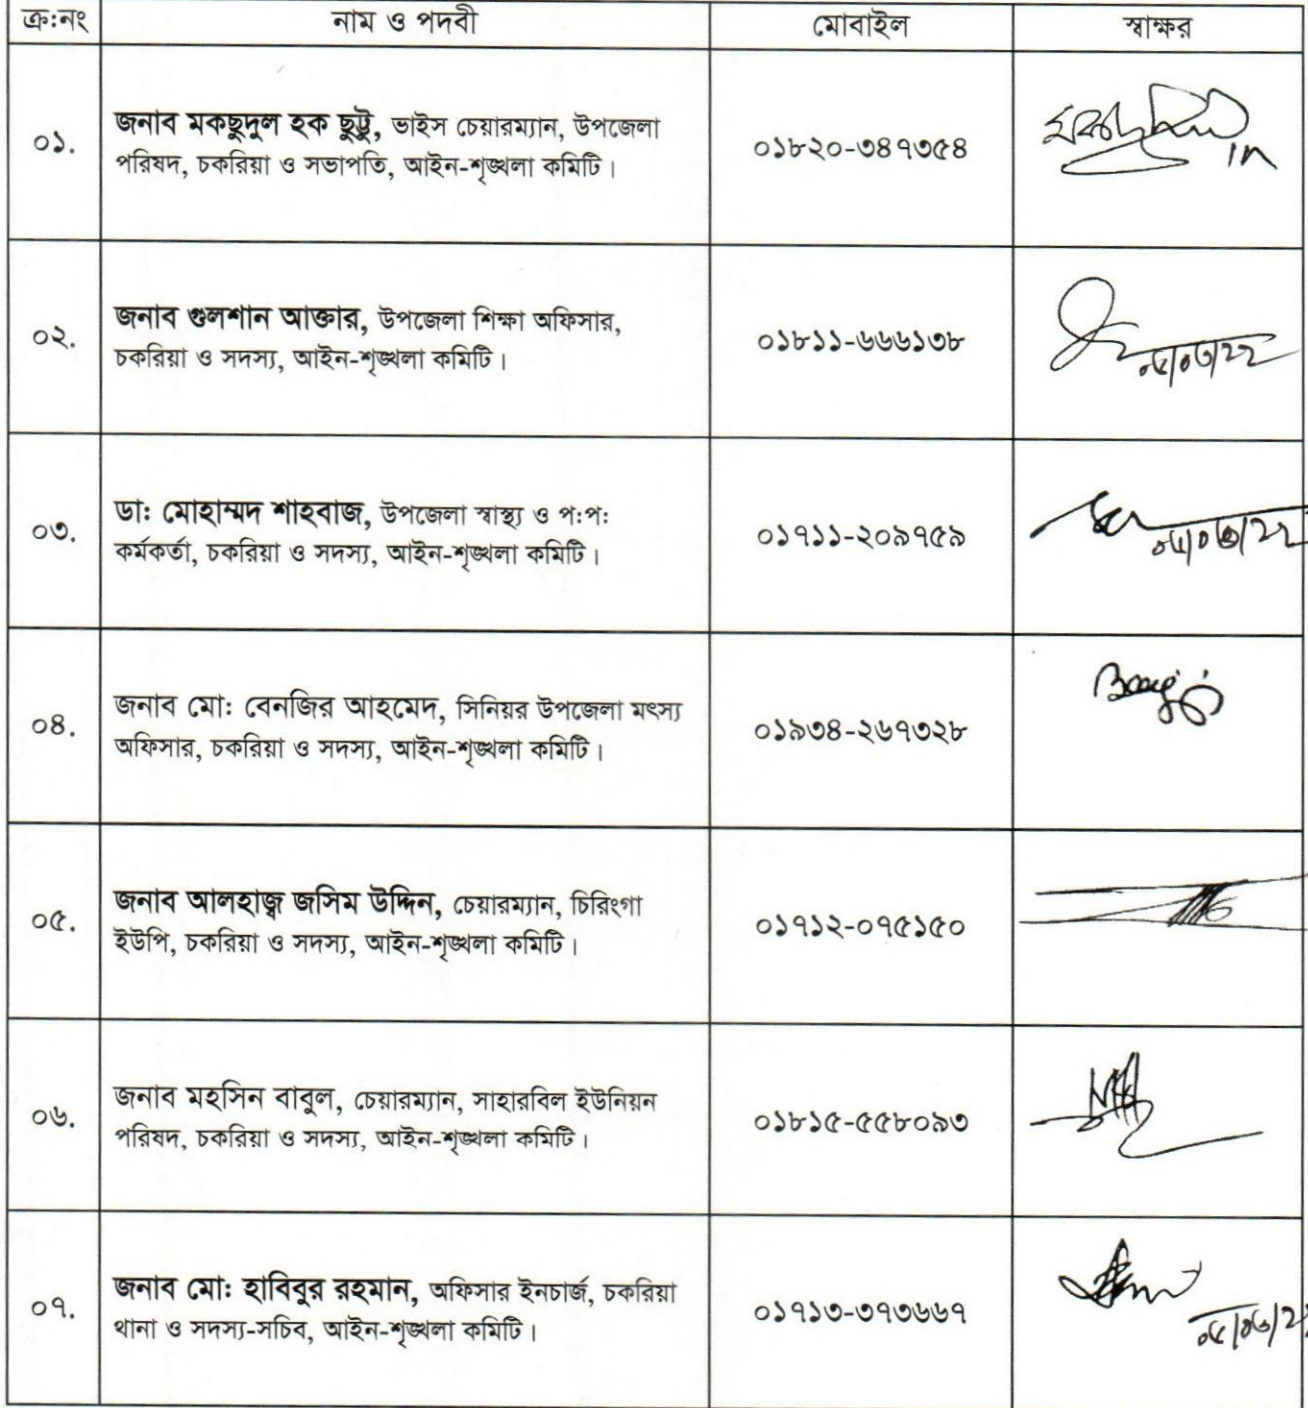 ক্র:নং নাম ও পদবী মোবাইল স্বাক্ষর
০১. জনাব মকছুদুল হক ছুট্টু, ভাইস চেয়ারম্যান, উপজেলা
পরিষদ, চকরিয়া ও সভাপতি, আইন-শৃঙ্খলা কমিটি। ০১৮২০-৩৪৭৩৫৪
০২. জনাব গুলশান আক্তার, উপজেলা শিক্ষা অফিসার,
চকরিয়া ও সদস্য, আইন-শৃঙ্খলা কমিটি। ০১৮১১-৬৬৬১৩৮
০৩. ডা: মোহাম্মদ শাহবাজ, উপজেলা স্বাস্থ্য ও প:প:
কর্মকর্তা, চকরিয়া ও সদস্য, আইন-শৃঙ্খলা কমিটি। ০১৭১১-২০৯৭৫৯
০৪. জনাব মো: বেনজির আহমেদ, সিনিয়র উপজেলা মৎস্য
অফিসার, চকরিয়া ও সদস্য, আইন-শৃঙ্খলা কমিটি। ০১৯৩৪-২৬৭৩২৮
০৫. জনাব আলহাজ্ব জসিম উদ্দিন, চেয়ারম্যান, চিরিংগা
ইউপি, চকরিয়া ও সদস্য, আইন-শৃঙ্খলা কমিটি। ০১৭১২-০৭৫১৫০
০৬. জনাব মহসিন বাবুল, চেয়ারম্যান, সাহারবিল ইউনিয়ন
পরিষদ, চকরিয়া ও সদস্য, আইন-শৃঙ্খলা কমিটি। ০১৮১৫-৫৫৮০৯৩
০৭. জনাব মো: হাবিবুর রহমান, অফিসার ইনচার্জ, চকরিয়া
থানা ও সদস্য-সচিব, আইন-শৃঙ্খলা কমিটি। ০১৭১৩-৩৭৩৬৬৭